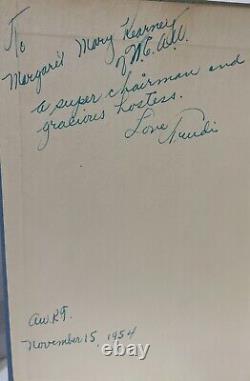 To
Margaret Mary Kearney
a super chairman and
gracious hostess.
Love Trudi
November 15, 1954
ebay